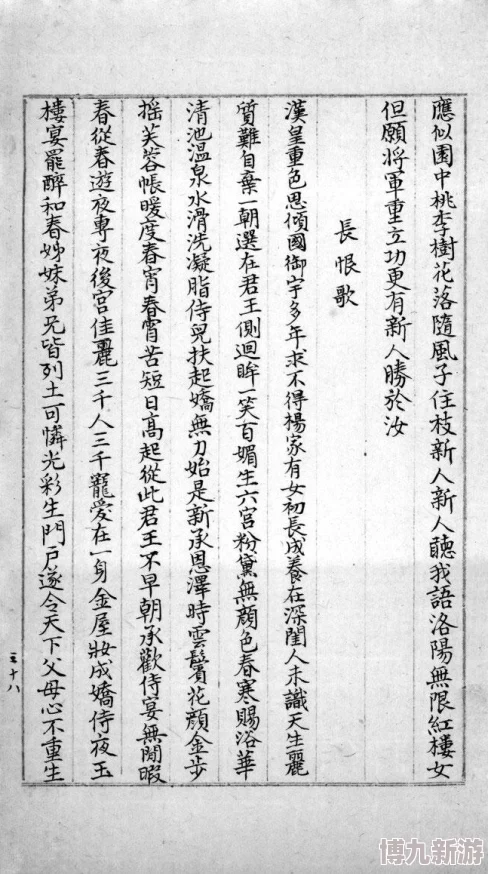 應似園中桃李樹花落隨風子住枝新人新人聽我語洛陽無限紅樓女
但願將軍重立功更有新人勝於汝
長恨歌
漢皇重色思傾國御宇多年求不得楊家有女初長成養在深閨人未識天生麗
質難自棄一朝選在君王側迴眸一笑百媚生六宮粉黛無顏色春寒賜浴華
清池溫泉水滑洗凝脂侍兒扶起嬌無力始是新承恩澤時雲鬢花顏金步
搖芙蓉帳暖度春宵春霄苦短日高起從此君王不早朝承歡侍宴無閒暇
春從春遊夜專夜後宮佳麗三千人三千寵愛在一身金屋妝成嬌侍夜玉
樓宴罷醉和春姊妹弟兄皆列土可憐光彩生門戶遂令天下父母心不重生
三十八
博九新游